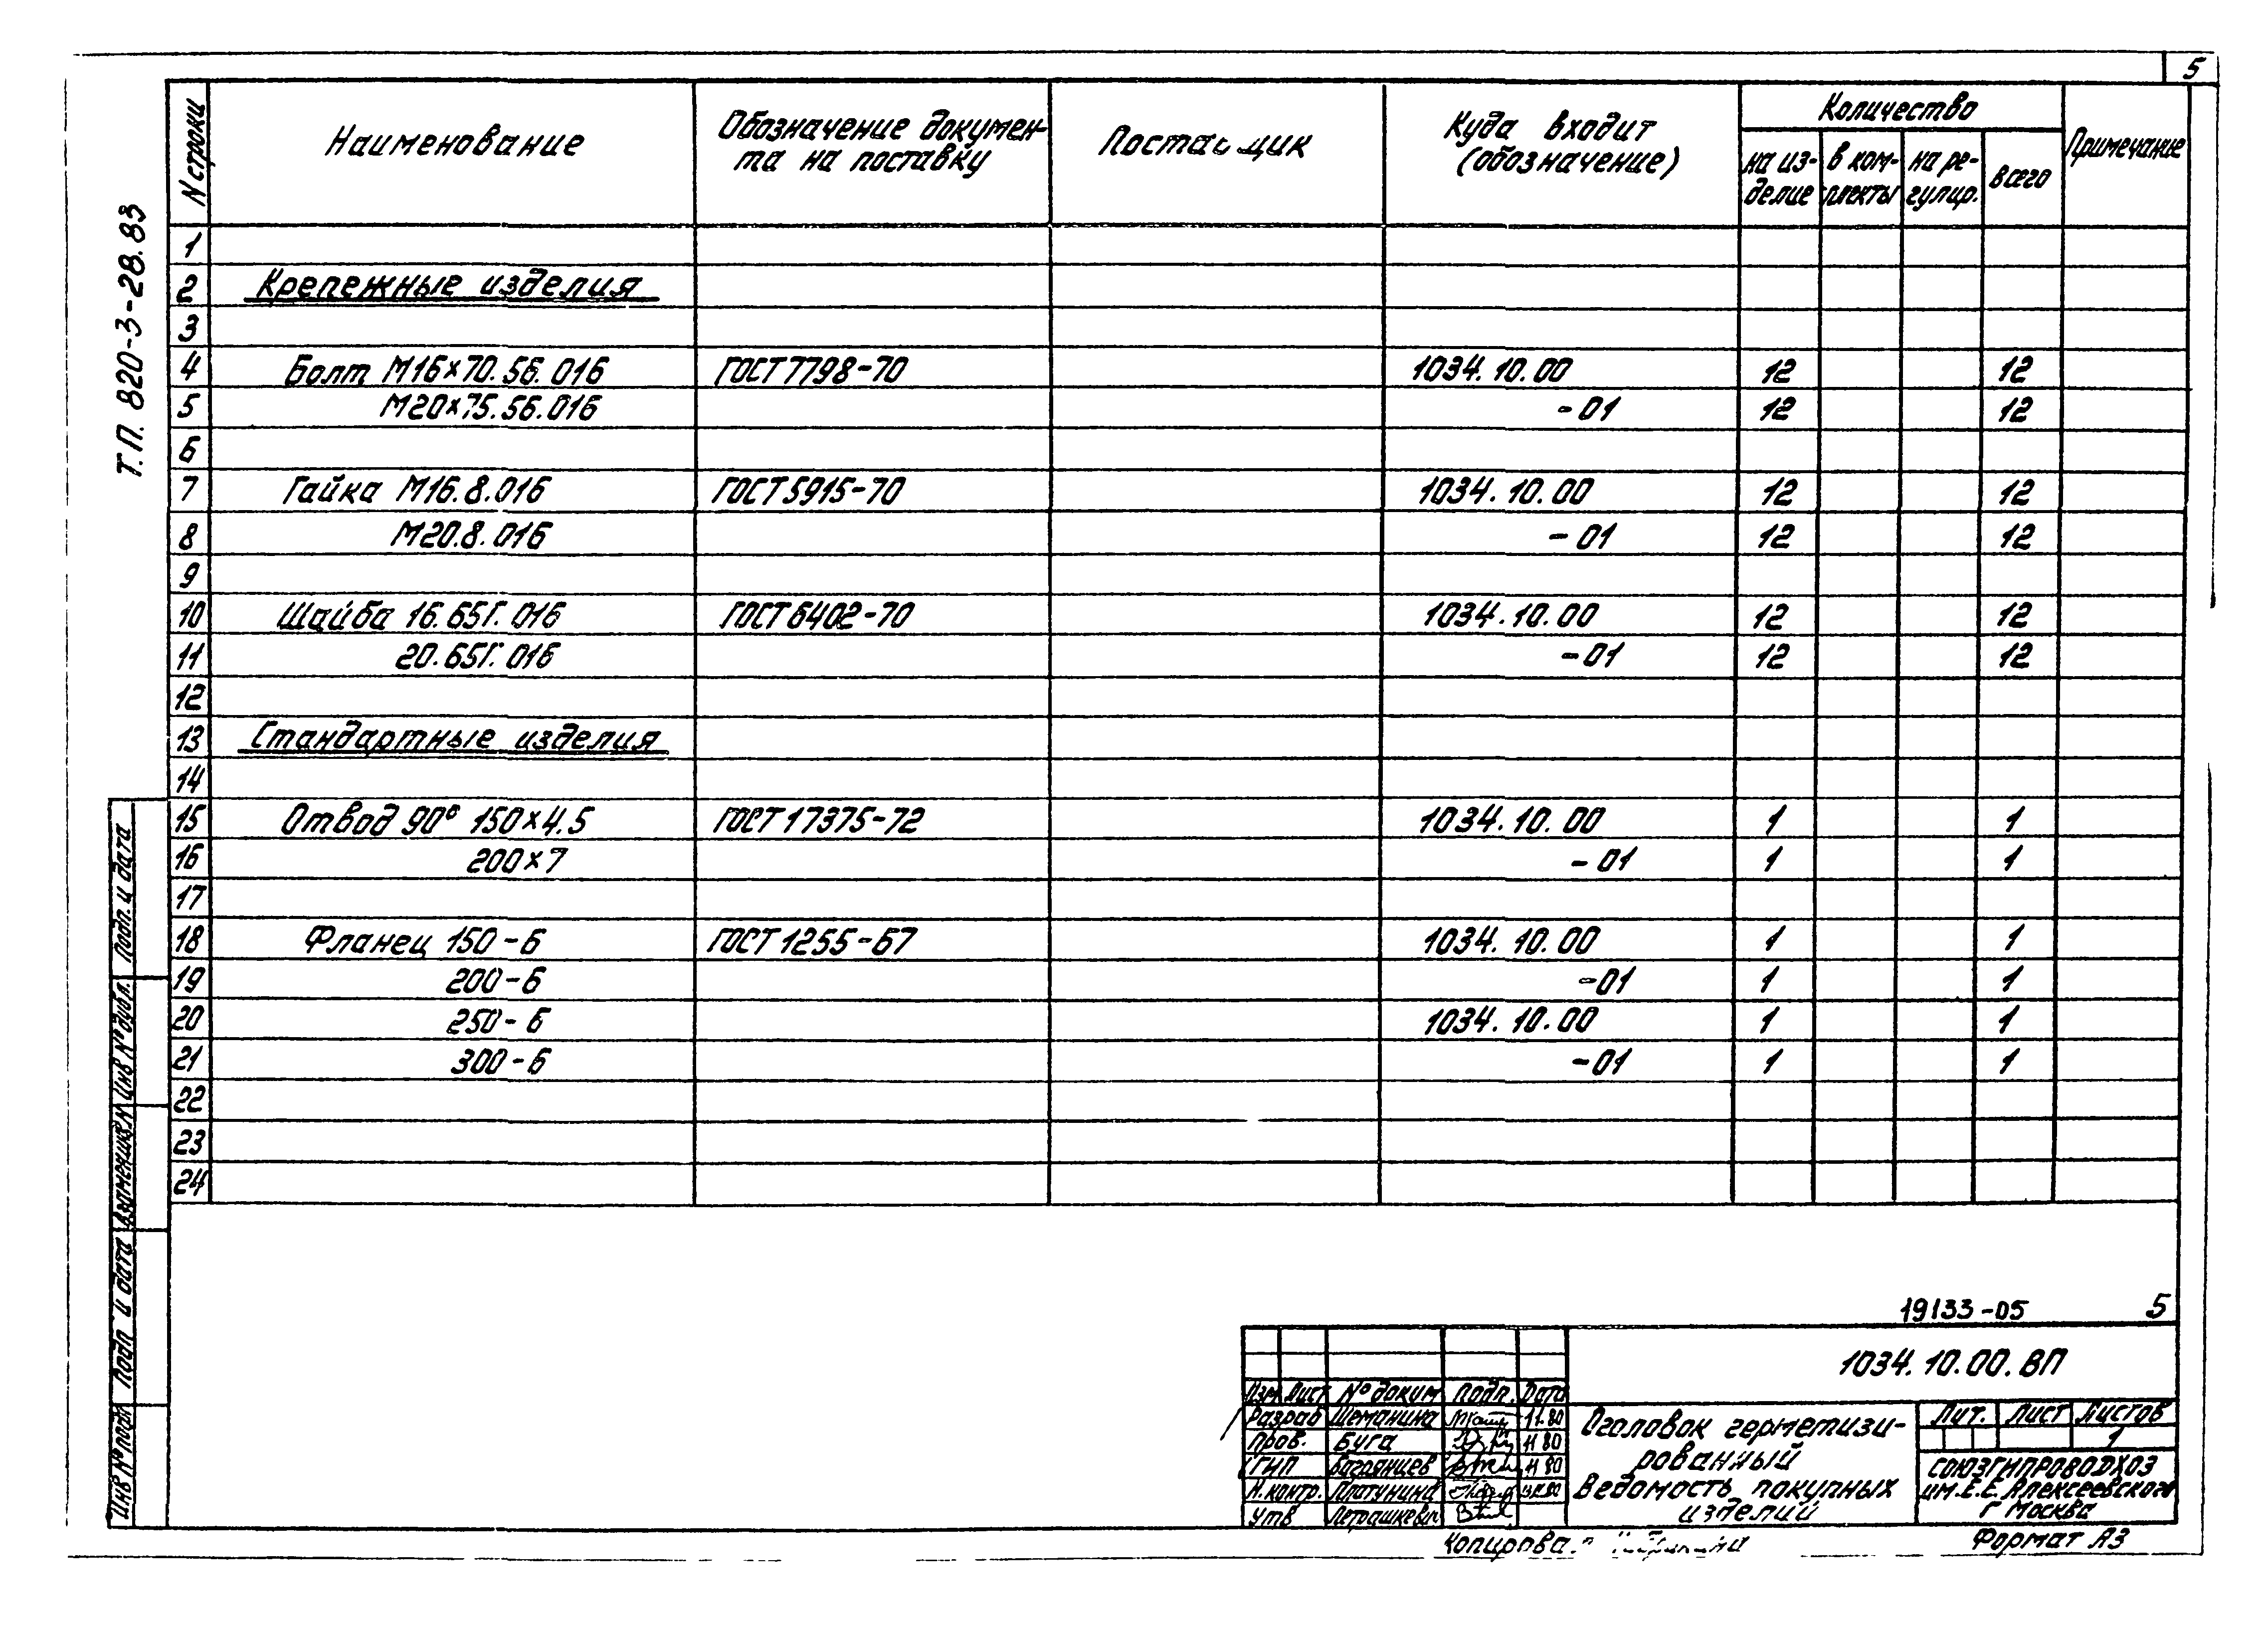 5
Т.П. 820-3-28.83
N строки
Наименование
Обозначение докумен-
та на поставку
Куда входит
(обозначение)
Количество
на из-
делие
в ком-
плекты
на ре-
гулир.
всего
Примечание
1
2 Крепежные изделия
3
4 Болт М16×70.56.016 ГОСТ 7798-70 1034.10.00 12 12
5 М20×75.56.016 -01 12 12
6
7 Гайка М16.8.016 ГОСТ 5915-70 1034.10.00 12 12
8 М20.8.016 -01 12 12
9
10 Шайба 16.65Г.016 ГОСТ 6402-70 1034.10.00 12 12
11 20.65Г.016 -01 12 12
12
13 Стандартные изделия
14
15 Отвод 90° 150×4.5 ГОСТ 17375-72 1034.10.00 1 1
16 200×7 -01 1 1
17
18 Фланец 150-6 ГОСТ 1255-67 1034.10.00 1 1
19 200-6 -01 1 1
20 250-6 1034.10.00 1 1
21 300-6 -01 1 1
22
23
24
Подп. и дата
Инв N° дубл.
Подп и дата
Инв N° подл
19133-05 5
1034.10.00.ВП
Изм. Лист N° доким Подп. Дата
Разраб Шеманина 11.80
Пров. Буга 11 80
ГИП Багрянцев 11 80
Н.контр. Платунина
Утв Петрашкевич
Оголовок герметизи-
рованный
Ведомость покупных
изделий
Лит. Лист Листов
1
СОЮЗГИПРОВОДХОЗ
им. Е.Е. Алексеевского
г Москва
Формат А3